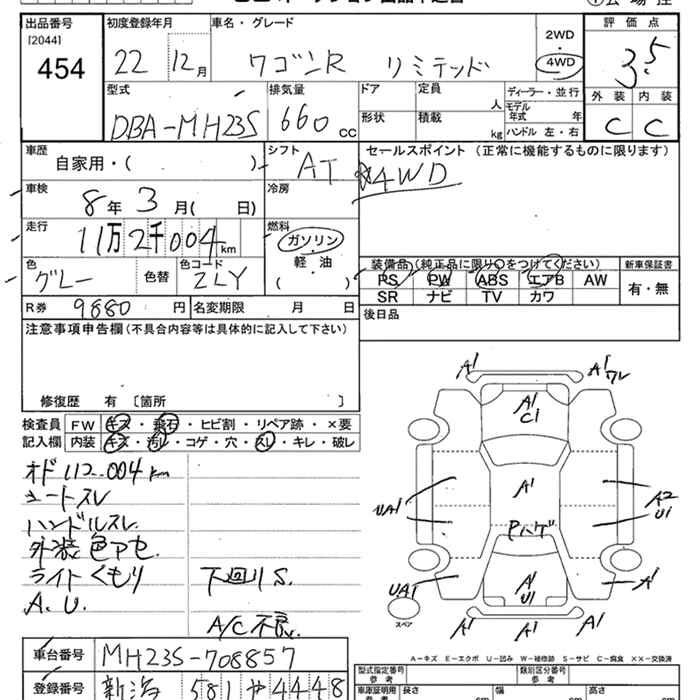 出品番号 初度登録年月 車名・グレード 2WD・4WD 評価点
[2044]
454 22 12月 ワゴンR リミテッド 3.5
外装 内装
C C
型式 排気量 ドア 定員 人 ディーラー・並行
DBA-MH23S 660cc 形状 積載 kg モデル年式 年
ハンドル 左・右
車歴 シフト セールスポイント (正常に機能するものに限ります)
自家用・( ) AT 4WD
車検 8年3月( 日) 冷房
走行 11万2千004km 燃料
ガソリン
軽・油
( )
色 グレー 色替 色コード ZLY
装備品 (純正品に限り○をつけてください) 新車保証書
PS PW ABS エアB AW 有・無
SR ナビ TV カワ
R券 9880円 名変期限 月 日
後日品
注意事項申告欄(不具合内容等は具体的に記入して下さい)
修復歴 有 〔箇所 〕
検査員 FW キズ・飛石・ヒビ割・リペア跡・×要
記入欄 内装 キズ・汚レ・コゲ・穴・スレ・キレ・破レ
オド112.004km
シートスレ
ハンドルスレ
外装色アセ
ライトくもり 下回りS.
A.U.
A/C不良
A1 A1ワレ
A1
C1
UA1 A1 A2
U1
Pハゲ
UA1 A1
U1 A1
スペア
A1 A1 A1
A-キズ E-エクボ U-凹み W-補修跡 S-サビ C-腐食 XX-交換済
車台番号 MH23S-708857
型式指定番号 参考 類別区分番号 参考
登録番号 新潟 581 や 4448
車庫証明用 参考 長さ cm 幅 cm 高さ cm